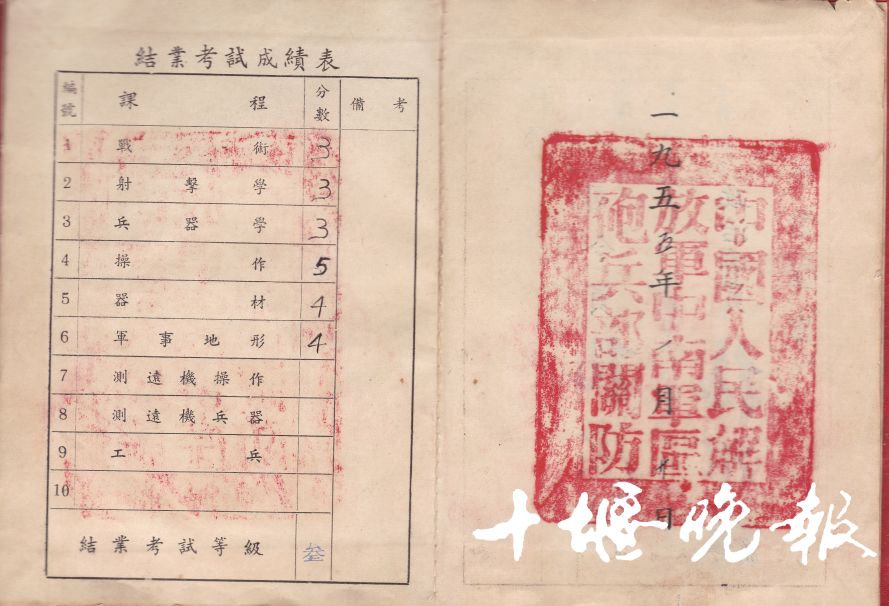 結業考試成績表
編號 課程 分數 備考
1 戰術 3
2 射擊學 3
3 兵器學 3
4 操作 5
5 器材 4
6 軍事地形 4
7 測遠機操作
8 測遠機兵器
9 工兵
10
結業考試等級 叁
一九五五年一月廿日
中國人民解
放軍中南軍區
砲兵部關防
十堰晚報